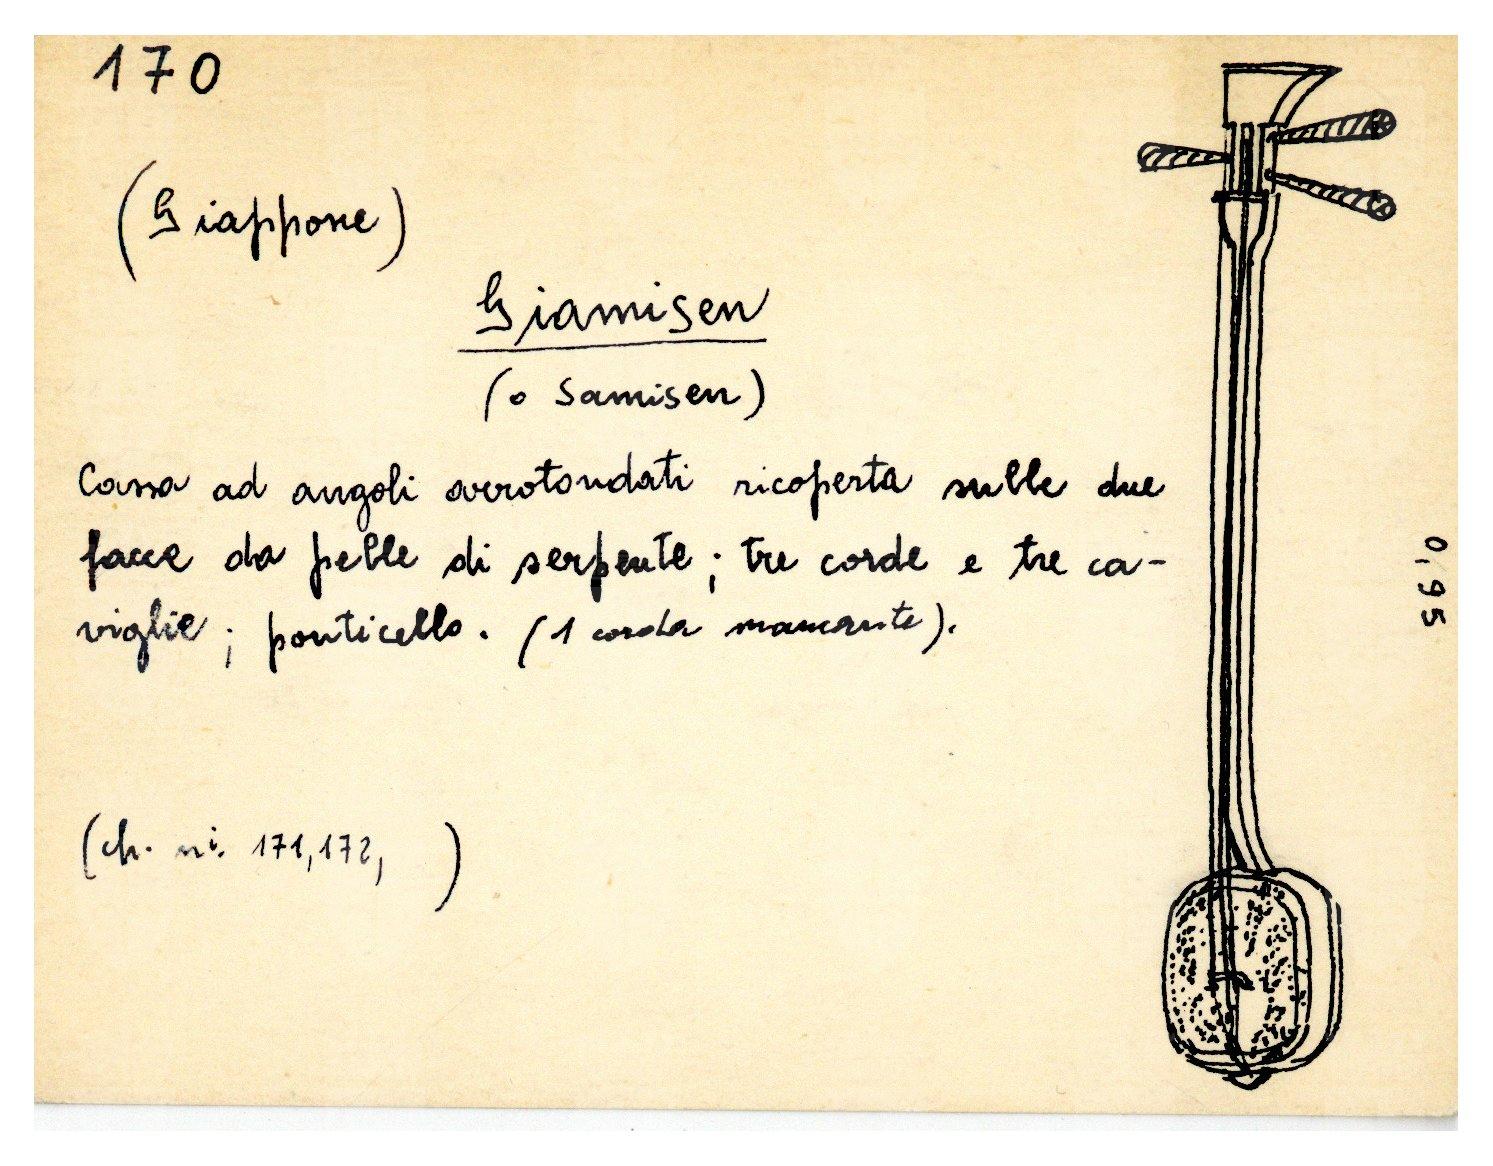 170
(Giappone)
Giamisen
(o Samisen)
Cassa ad angoli arrotondati ricoperta sulle due
facce da pelle di serpente; tre corde e tre ca-
viglie; ponticello. (1 corda mancante).
0,95
(ch. ni. 171, 172, )